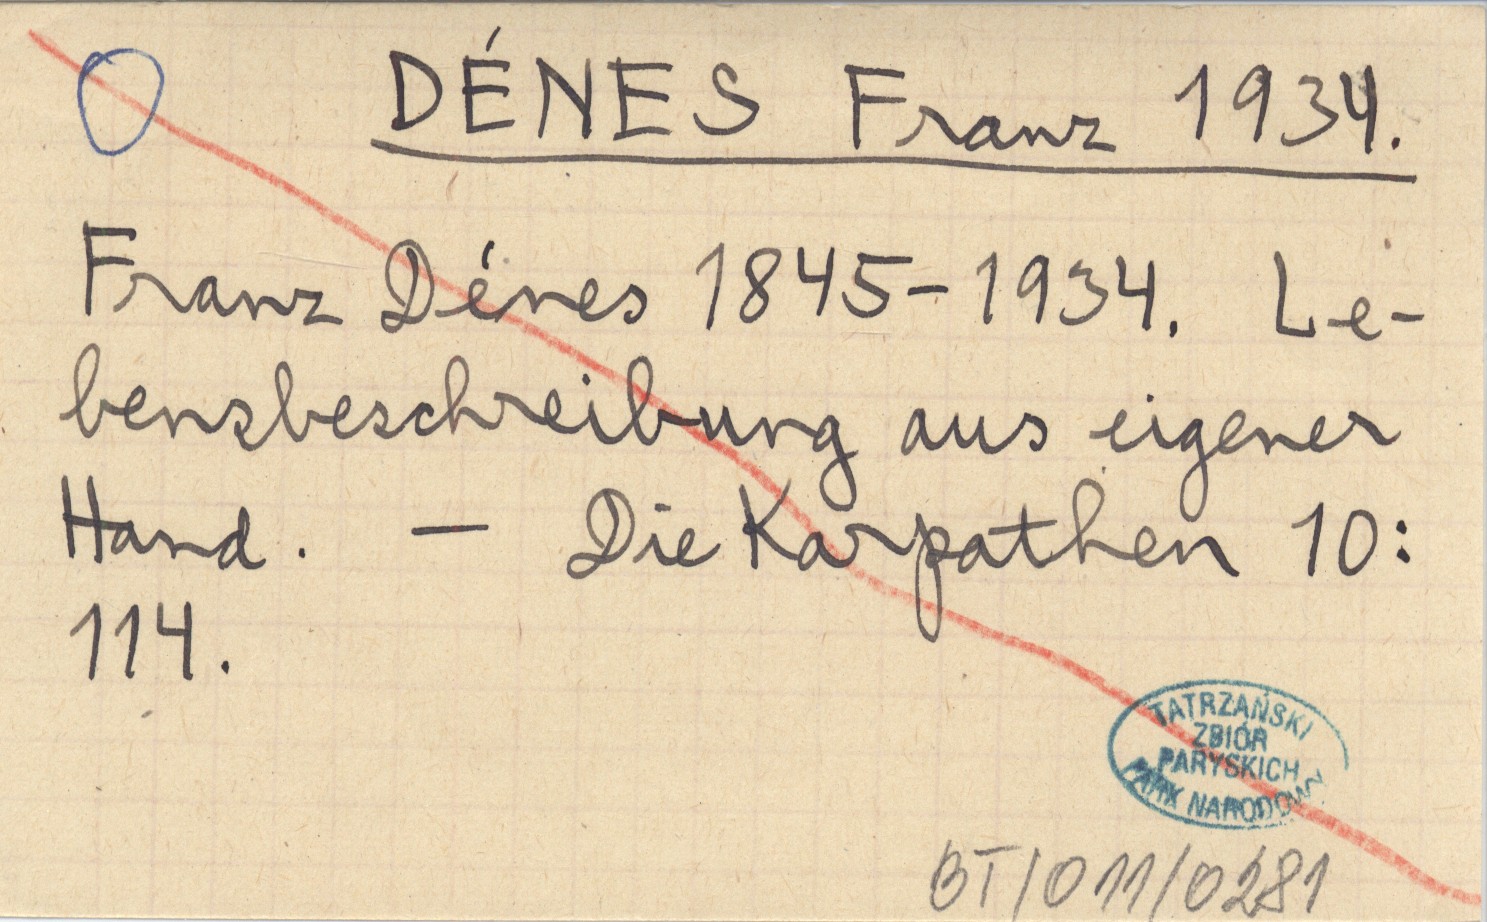 DÉNES Franz 1934.
Franz Dénes 1845-1934. Le-
bensbeschreibung aus eigener
Hand. — Die Karpathen 10:
114.
TATRZAŃSKI
ZBIÓR
PARYSKICH
PARK NARODOWY
BT/011/0281